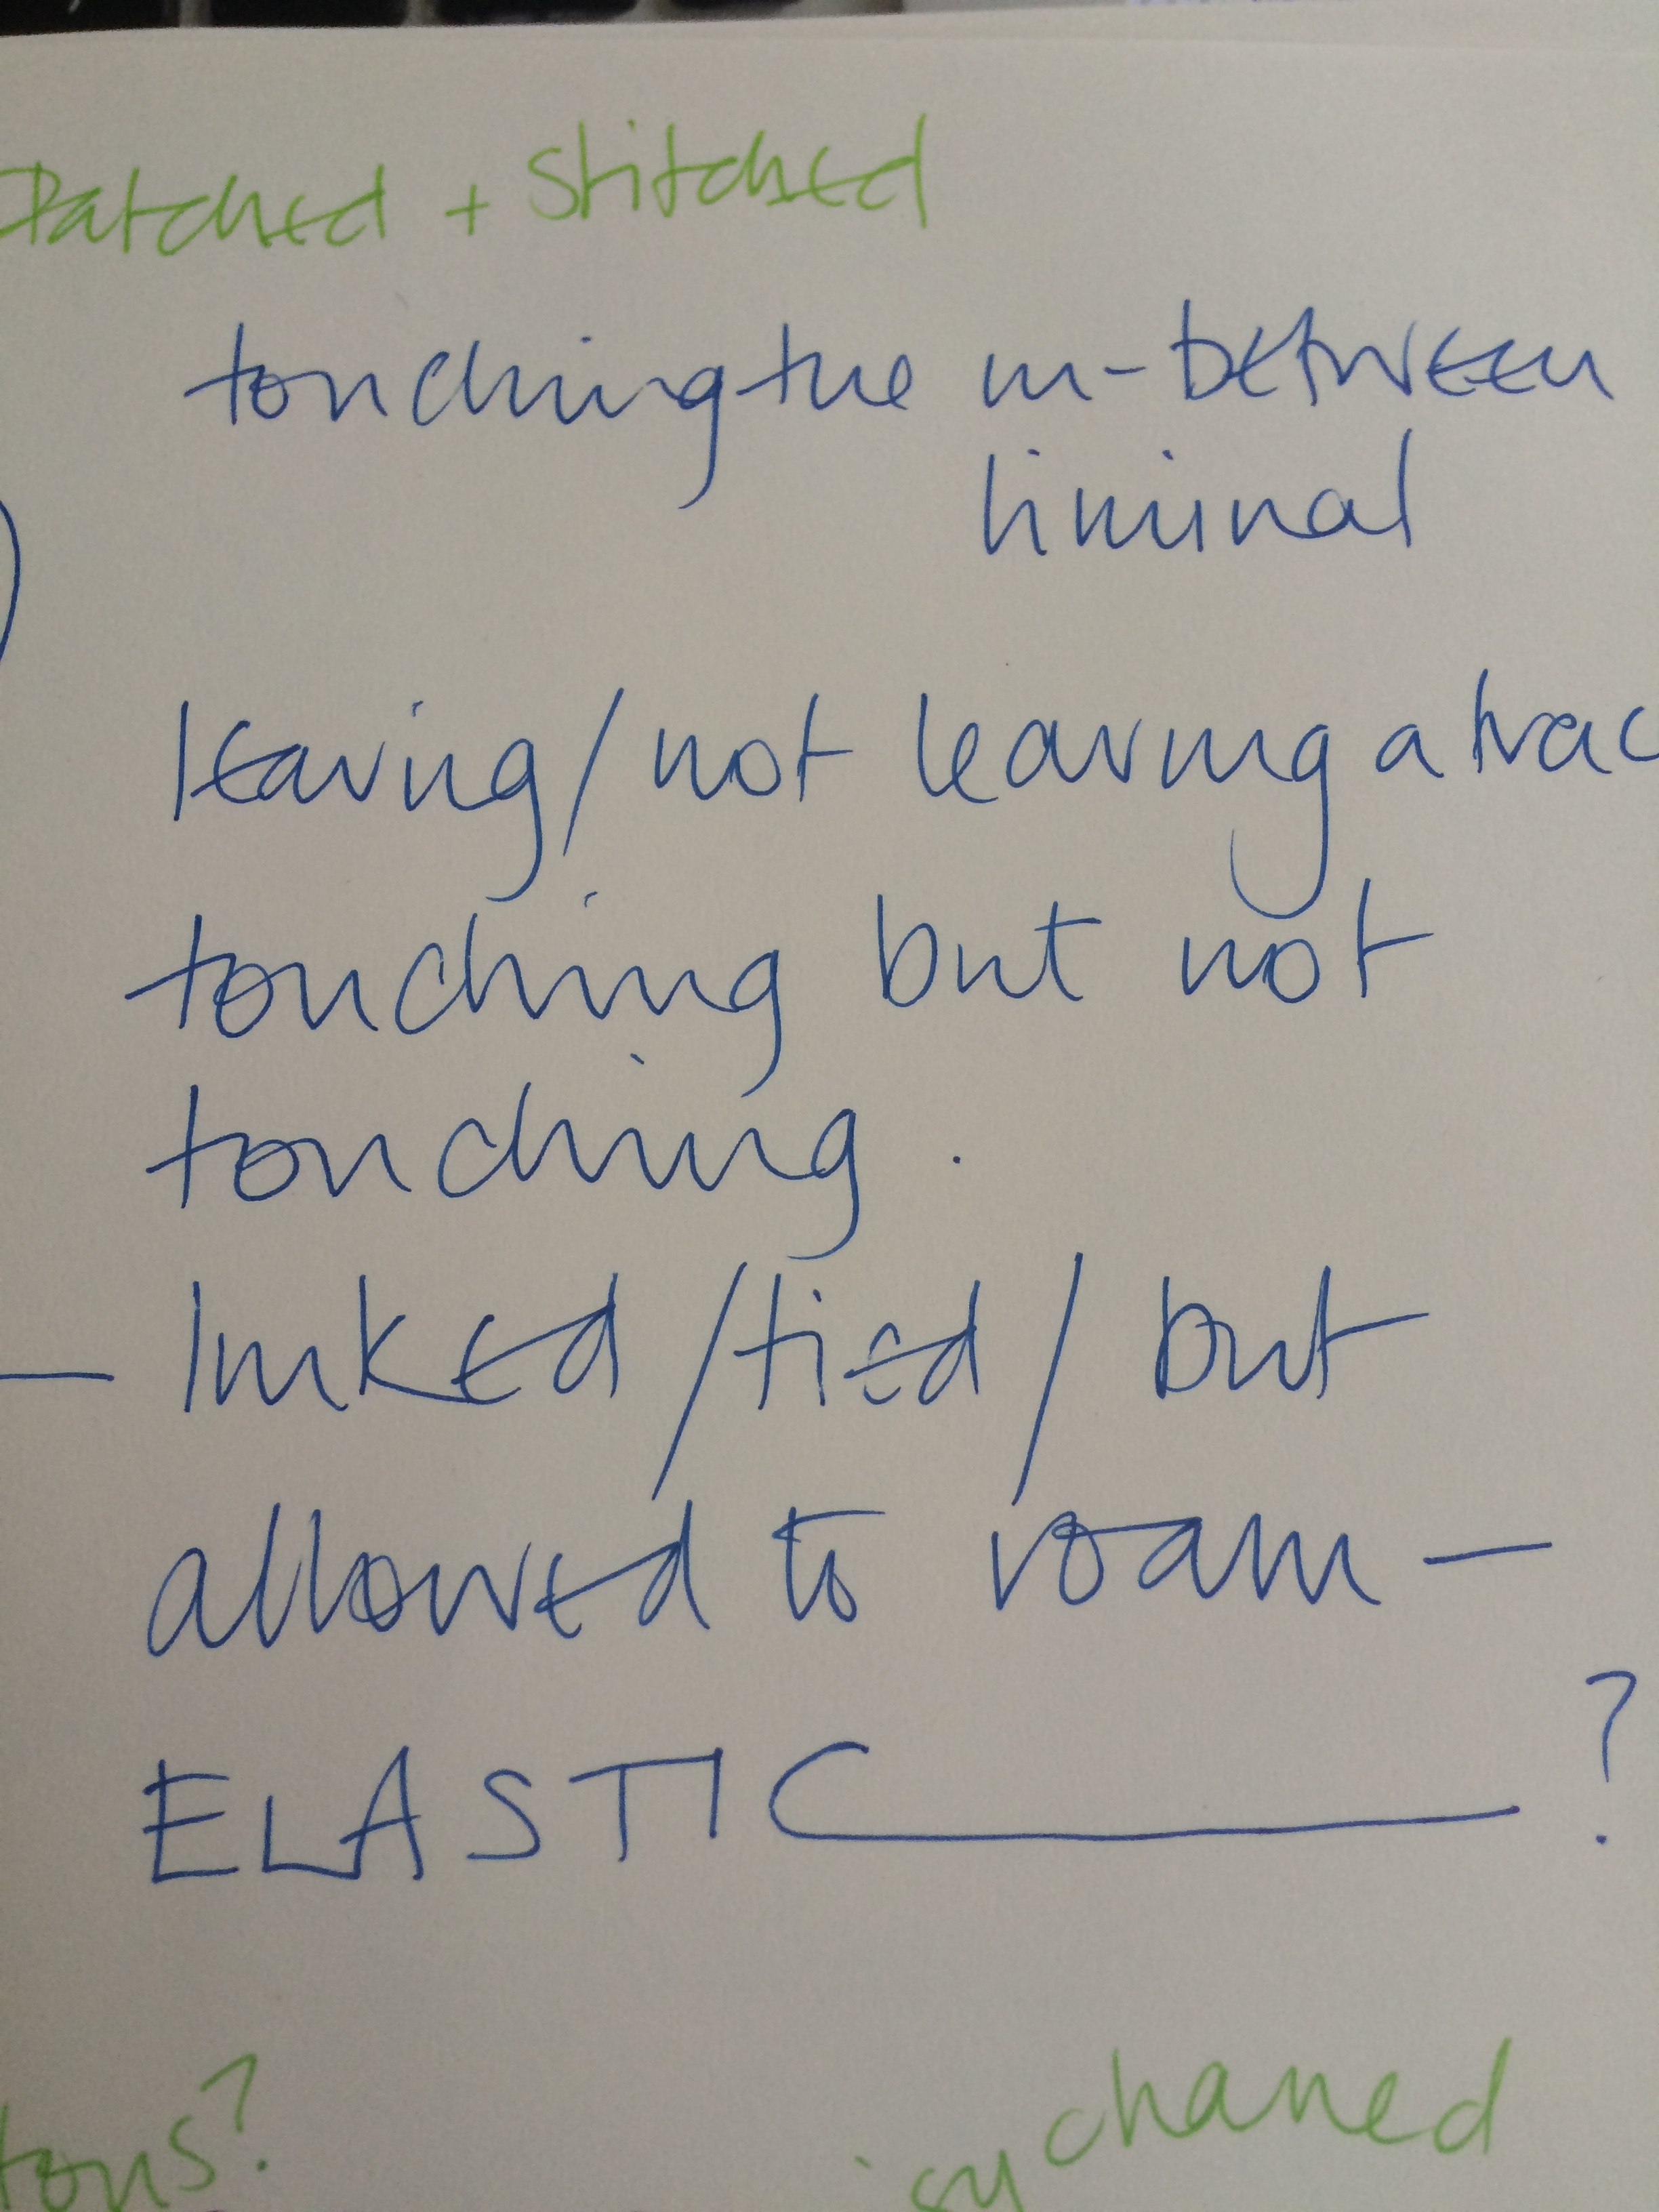 Patched + Stitched
touching the in-between
liminal
leaving / not leaving a trac
touching but not
touching .
— linked / tied / but
allowed to roam —
ELASTIC ?
chained